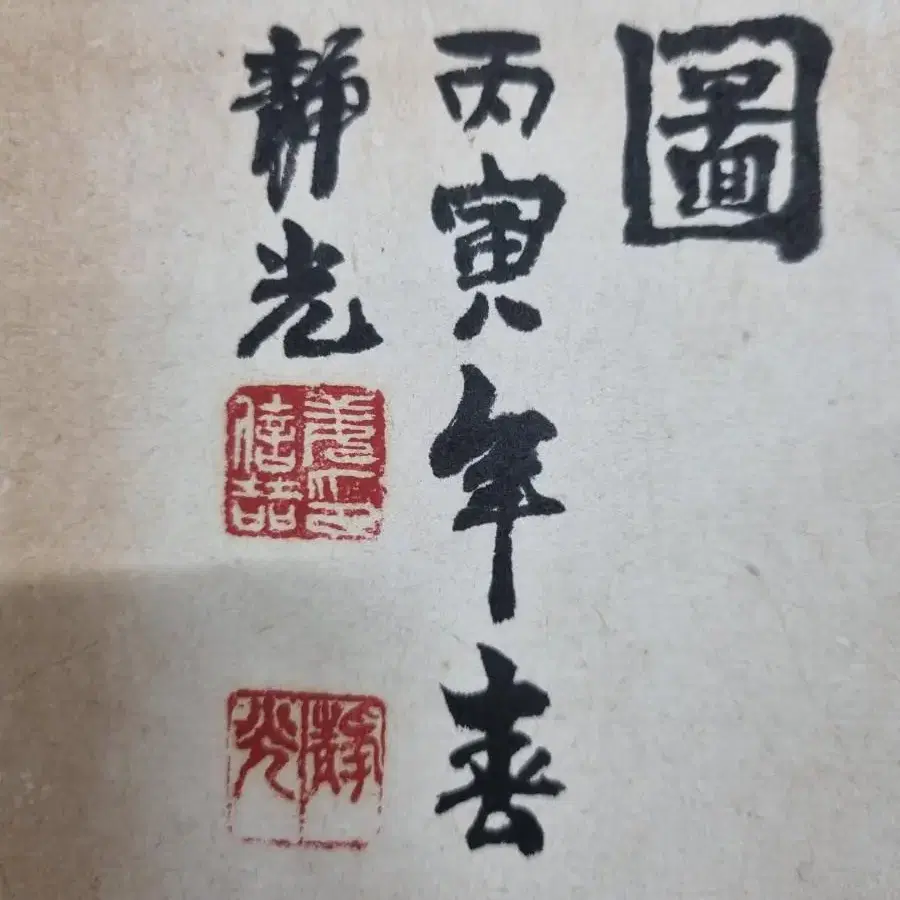 圖
丙寅年春
靜光
印
喆
靜光